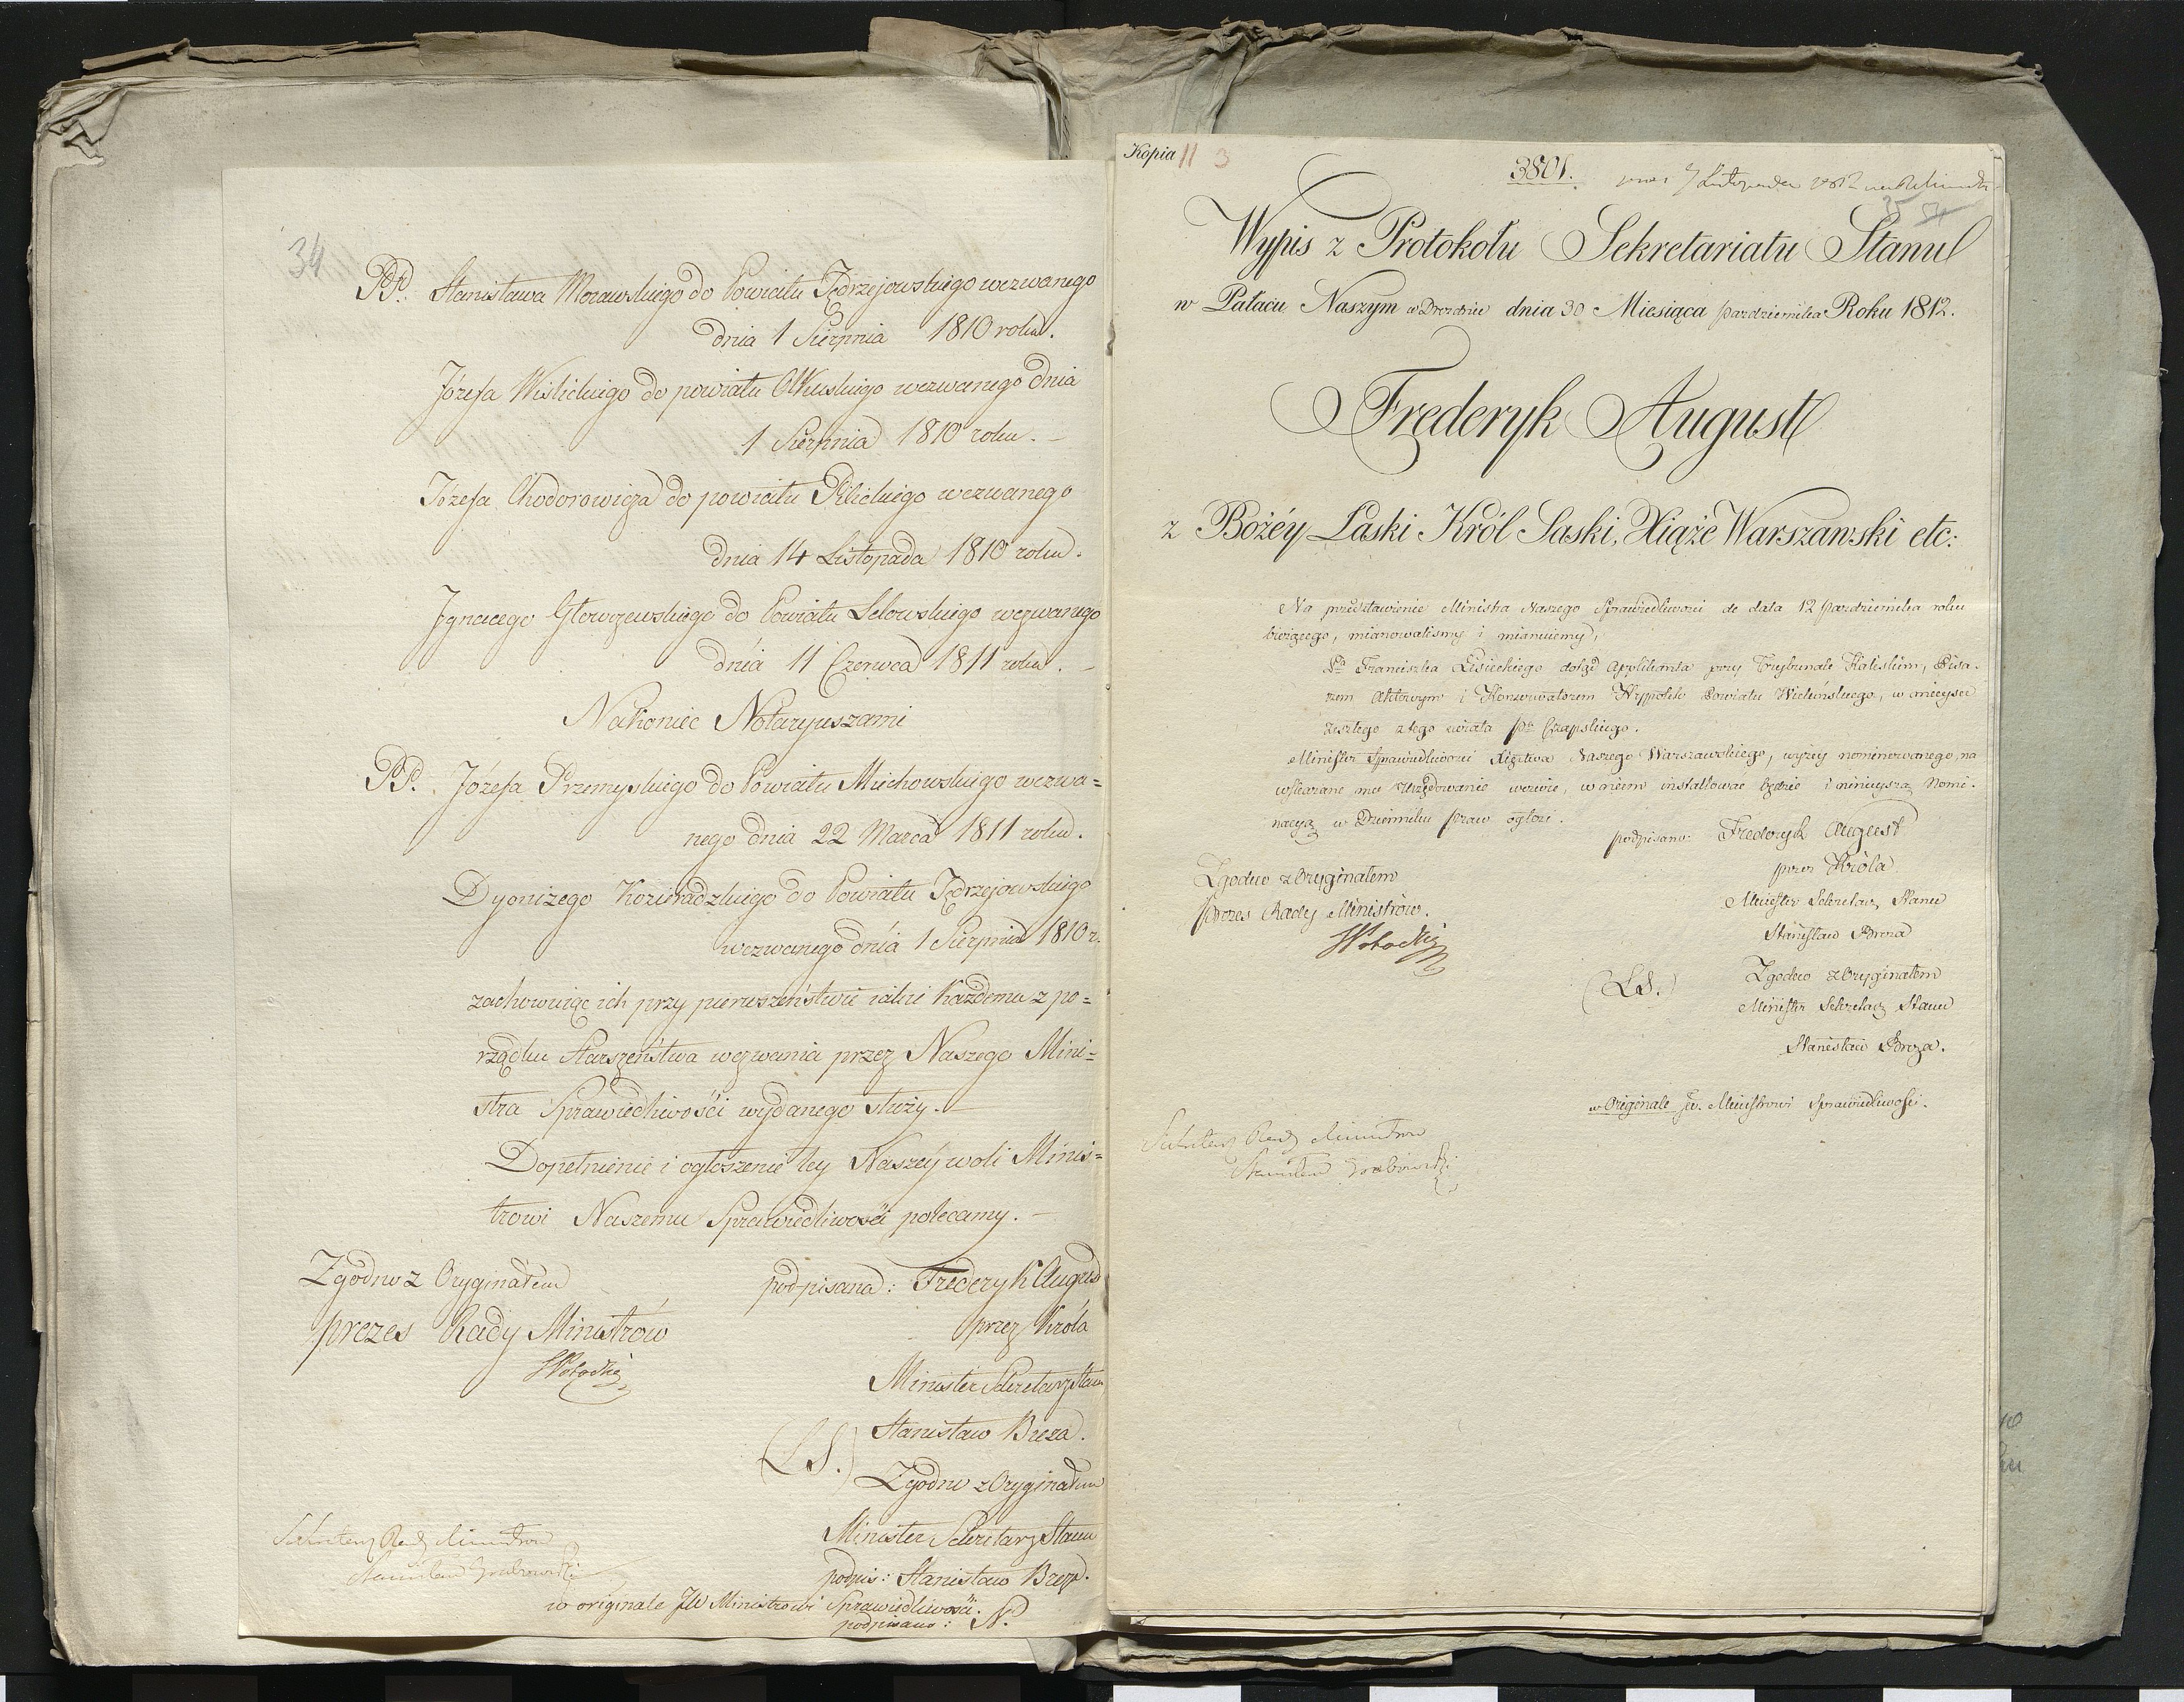 34
PP. Stanisława Morawskiego do Powiatu Jędrzejowskiego wezwanego
dnia 1 Sierpnia 1810 roku.
Józefa Wislickiego do powiatu Olkuskiego wezwanego dnia
1 Sierpnia 1810 roku. –
Józefa Chodorowicza do powiatu Pilickiego wezwanego
dnia 14 Listopada 1810 roku.
Ignacego Głowczewskiego do Powiatu Lelowskiego wezwanego
dnia 11 Czerwca 1811 roku. –
Nakoniec Notaryuszami
PP. Józefa Przemyskiego do Powiatu Miechowskiego wezwa=
nego dnia 22 Marca 1811 roku.
Dyonizego Kozieradzkiego do Powiatu Jędrzejowskiego
wezwanego dnia 1 Sierpnia 1810 r.
zachowuiąc ich przy pierwszeństwie iakie każdemu z po=
rządku starszeństwa wezwania przez Naszego Mini=
stra Sprawiedliwości wydanego służy. –
Dopełnienie i ogłoszenie tey Naszéy woli Minis=
trowi Naszemu Sprawiedliwości polecamy. –
Zgodno z Oryginałem
prezes Rady Ministrów
podpisano: Frederyk August
przez Króla
Minister Sekretarz Stanu
Stanisław Breza.
(LS.)
Zgodno z Oryginałem
Minister Sekretarz Stanu
podpis: Stanisław Breza.
Sekretarz Rady Ministrów
Stanisław Grabowski
w originale JW Ministrowi Sprawiedliwości.
podpisano: N.
Kopia 11 3
3801.
7 Listopada
35 54
Wypis z Protokołu Sekretariatu Stanu
w Pałacu Naszym w Dreznie dnia 30 Miesiąca Pazdziernika Roku 1812.
Frederyk August
z Bożéy Łaski Król Saski, Xiąże Warszawski etc:
Na przedstawienie Ministra Naszego Sprawiedliwości de dato 12 Pazdziernika roku
bieżącego, mianowaliśmy i mianuiemy,
Pa Franciszka Lisieckiego dotąd Applikanta przy Trybunale Kaliskim, Pisa-
rzem Aktowym i Konserwatorem Hypotek Powiatu Wieluńskiego, w mieysce
zeszłego z tego świata Pa Czapskiego.
Minister Sprawiedliwości Xięstwa Naszego Warszawskiego, wyżéy nominowanego, na
wskazane mu Urzędowanie wezwie, w niem installować będzie i ninieyszą Nomi-
nacyą w Dzienniku praw ogłosi.
podpisano: Frederyk August
przez Króla
Minister Sekretarz Stanu
Stanisław Breza
Zgodno z Oryginałem
Prezes Rady Ministrów.
(LS.)
Zgodno z Oryginałem
Minister Sekretarz Stanu
Stanisław Breza.
w Originale JW. Ministrowi Sprawiedliwości.
Sekretarz Rady Ministrów
Stanisław Grabowski